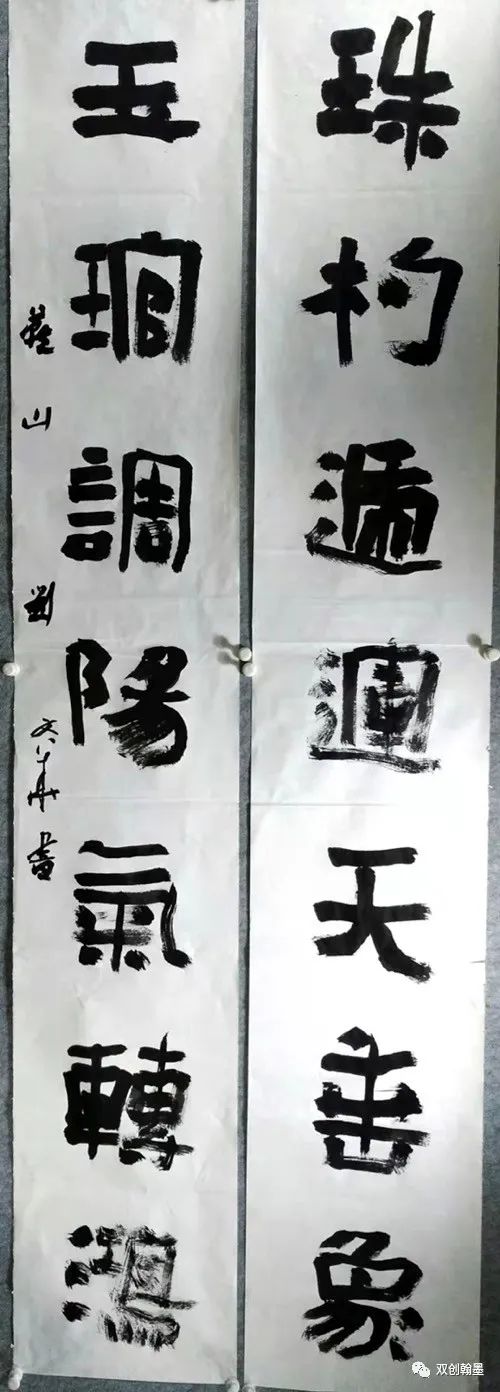 珠杓遞運天垂象
玉琯調陽氣轉鴻
山劉文華書
双创翰墨